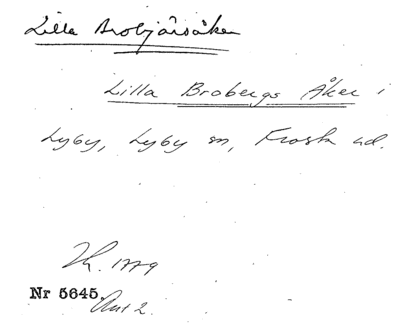 Lilla Brobjärsåken
Lilla Brobergs Åker i
Lyby, Lyby sn, Frosta hd.
1779
Nr 5645.
Akt 2.